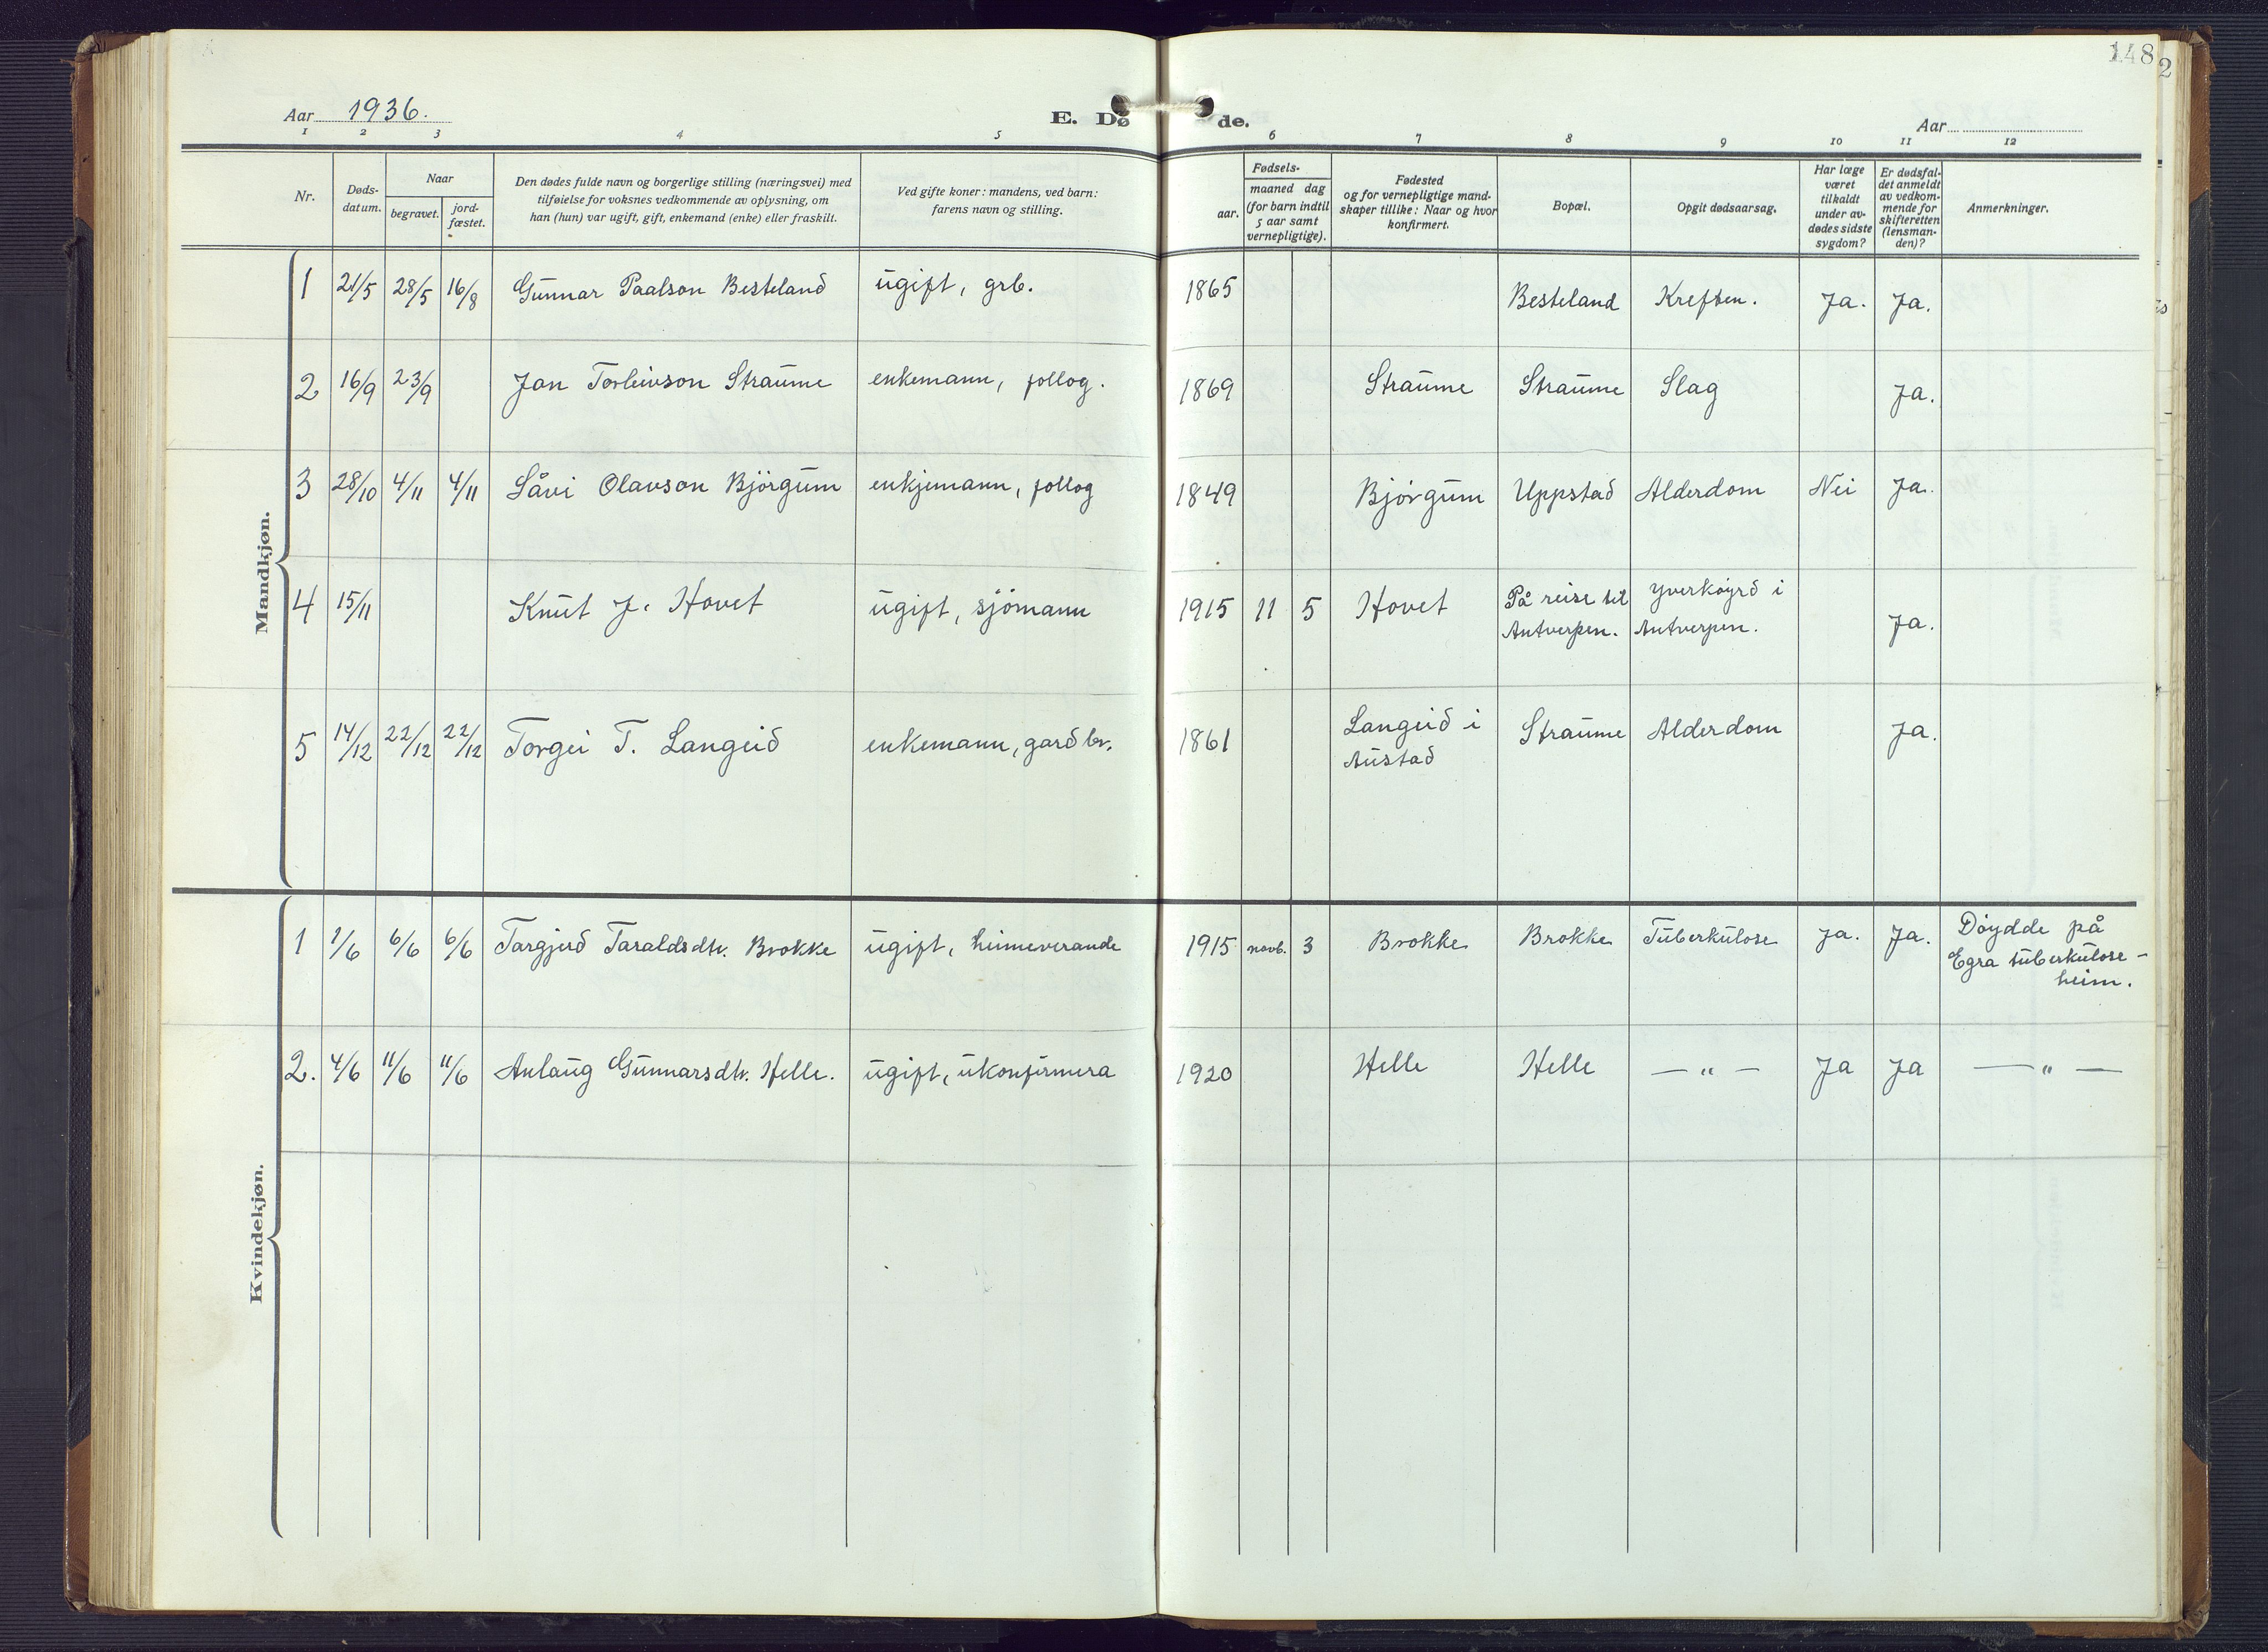 148
2
Aar 1936.
E. Dø de.
Aar
1 2 3 4 5 6 7 8 9 10 11 12
Nr.
Døds-
datum.
Naar
begravet.
jord-
fæstet.
Den dødes fulde navn og borgerlige stilling (næringsvei) med
tilføielse for voksnes vedkommende av oplysning, om
han (hun) var ugift, gift, enkemand (enke) eller fraskilt.
Ved gifte koner: mandens, ved barn:
farens navn og stilling.
Fødsels-
aar.
maaned dag
(for barn indtil
5 aar samt
vernepligtige).
Fødested
og for vernepligtige mand-
skaper tillike: Naar og hvor
konfirmert.
Bopæl.
Opgit dødsaarsag.
Har læge
været
tilkaldt
under av-
dødes sidste
sygdom?
Er dødsfal-
det anmeldt
av vedkom-
mende for
skifteretten
(lensman-
den)?
Anmerkninger.
Mandkjøn.
1 21/5 28/5 16/8 Gunnar Paalson Besteland ugift, grb. 1865 Besteland Kreften. Ja. Ja.
2 16/9 23/9 Jon Torleivson Straume enkemann, follog. 1869 Straume Straume Slag Ja.
3 28/10 4/11 4/11 Såvi Olavson Björgum enkjemann, follog 1849 Björgum Uppstad Alderdom Nei Ja.
4 15/11 Knut J. Hovet ugift, sjömann 1915 11 5 Hovet På reise til Yverköyrd i
Antverpen. Antverpen. Ja.
5 14/12 22/12 22/12 Torgei T. Langeid enkemann, gardbr. 1861 Langeid i Straume Alderdom Ja.
Austad
Kvindekjøn.
1 1/6 6/6 6/6 Targjerd Taraldsdtr. Brokke ugift, heimeverande 1915 novb. 3 Brokke Brokke Tuberkulose Ja. Ja. Döydde på
Egra tuberkulose-
heim.
2. 4/6 11/6 11/6 Anlaug Gunnarsdtr. Helle. ugift, ukonfirmera 1920 Helle Helle — " — Ja Ja — " —